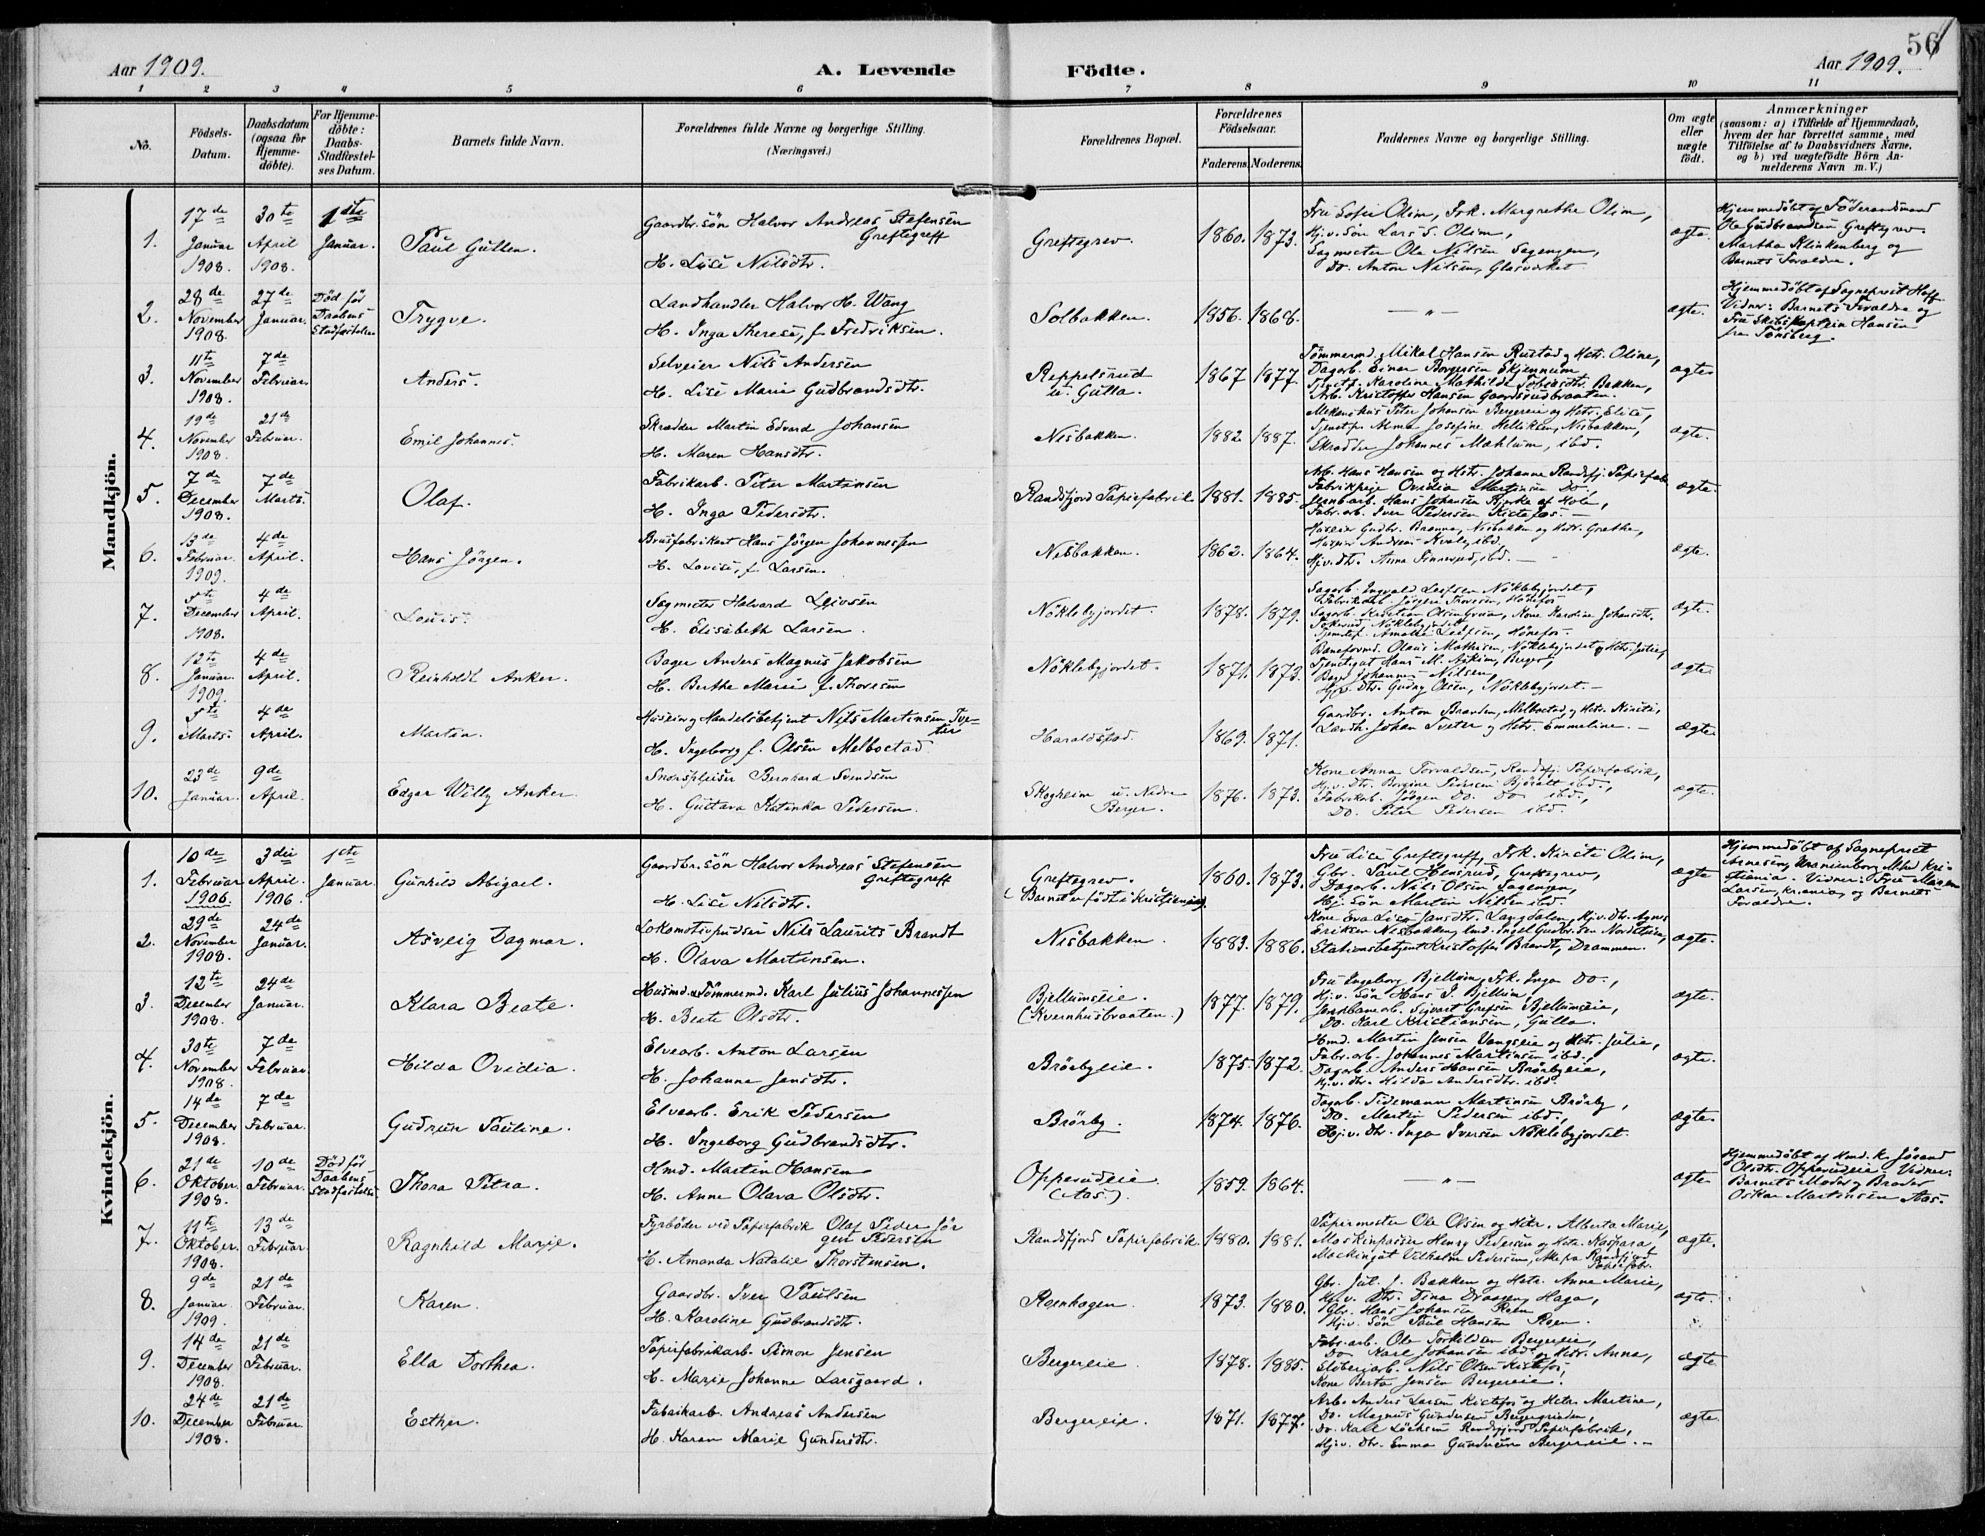 56
Aar 1909.
A. Levende
Födte.
Aar 1909.
1 2 3 4 5 6 7 8 9 10 11
No.
Födsels-Datum.
Daabsdatum (ogsaa for Hjemme-döbte).
For Hjemme-döbte: Daabs-Stadfæstel-ses Datum.
Barnets fulde Navn.
Forældrenes fulde Navne og borgerlige Stilling.
(Næringsvei.)
Forældrenes Bopæl.
Forældrenes Födselsaar.
Faderens. Moderens.
Faddernes Navne og borgerlige Stilling.
Om ægte eller uægte födt.
Anmærkninger
(saasom: a) i Tilfælde af Hjemmedaab,
hvem der har forrettet samme, med
Tilföielse af to Daabsvidners Navne,
og b) ved uægtefödte Börn An-
melderens Navn m.V.)
Mandkjön.
1. 17de Januar 1908. 30te April 1908. 1ste Januar. Paul Gullen.
Gaardbr.sön Halvor Andreas Stefensen Greftegreff
H. Lise Nilsdtr.
Greftegrev. 1860. 1873.
Fru Sofie Olim, Frk. Margrethe Olim,
Hjv. Sön Lars S. Olim,
Sagmester Ole Nilsen Sagengen,
Do. Anton Nilsen, Glasværket
ægte.
Hjemmedöbt af Föderaadsmand
Ole Gudbrandsen Greftegrev.
Martha Klinkenberg og
Barnets Forældre.
2. 28de November 1908. 27de Januar. Död før Daabens Stadfæstelse Trygve.
Landhandler Halvor H. Wang
H. Inga Therese, f. Fredriksen.
Solbakken. 1856. 1868. — „ — ægte.
Hjemmedöbt af Sogneprest Hoff
Vidner: Barnets Forældre og
Fru Skibskaptein Hansen
fra Tønsberg.
3. 11te November 1908. 7de Februar. Anders.
Selveier Nils Andersen
H. Lise Marie Gudbrandsdtr.
Reppelsrud u. Gulla. 1867 1877
Tømmermd. Mikal Hansen Rustad og Hstr. Oline,
Dagarb. Einar Borgersen Skjennum
Tjenstp. Karoline Mathilde Tofensdtr. Bakken,
Arb. Kristoffer Hansen Gaardsrudbraaten.
ægte.
4. 19de November 1908. 21de Februar. Emil Johannes.
Skrædder Martin Edvard Johansen
H. Maren Hansdtr.
Nisbakken. 1882 1887.
Mekanikus Peter Johansen Bergereie og Hstr. Elise,
Tjenstp. Alma Josefine Helliksen, Nisbakken,
Skrædder Johannes Mæhlum, ibd.
ægte.
5. 7de December 1908. 7de Marts. Olaf.
Fabrikarb. Peter Martinsen
H. Inga Pedersdtr.
Randsfjord Papirfabrik 1881. 1885.
Arb. Hans Hansen og Hstr. Johanne Randsfj. Papirfabr.
Fabrikpige Ovidia Martinsen Do
Jernbarb. Hans Johansen Bjerke af Hole,
Fabr.arb. Iver Pedersen Kistefos. —
ægte.
6. 13de Februar 1909. 4de April. Hans Jörgen.
Brusfabrikant Hans Jörgen Johannessen
H. Lovise, f. Larsen.
Nisbakken. 1862. 1864.
Huseier Gudbr. Brænna, Nisbakken og Hstr. Grethe,
Huseier Andreas Kvale, ibd.
Hjv. Dtr. Anna Finnerud, ibd. —
ægte.
7. 5te December 1908. 4de April. Louis.
Sagmester Halvard Leivsen
H. Elisabeth Larsen.
Nöklebygjordet. 1878. 1879.
Sagarb. Ingvald Leifsen Nöklebyjordet,
Fabrikarb. Jörgen Thoresen, Hönefos.
ægte.
8. 12te Januar 1909. 4de April. Reinholdt Anker.
Bager Anders Magnus Jakobsen
H. Berthe Marie f. Thoresen
Nöklebyjordet. 1871. 1873.
Baneformd. Olaus Mathisen, Nöklebyjordet og Hstr. Julie,
Bager Johannes Nilsen,
Hjv. Dtr. Gudny Olsen, Nöklebyjordet. —
ægte.
9. 5te Marts. 4de April. Martin.
Huseier og Handelsbetjent Nils Martinsen Tveter
H. Ingeborg f. Olsen Melbostad
Haraldstad. 1869. 1871.
Gaardbr. Anton Braaden, Melbostad, og Hstr. Kirsti,
Landh. Johan Tveter og Hstr. Emmeline. —
ægte.
10. 23de Januar. 9de April. Edgar Willy Anker
Bernhard Svendsen
H. Gustava Katinka Pedersen.
Skogheim u. Nedre Berger. 1876. 1873.
Kone Anna Torvaldsen, Randsfj. Papirfabrik,
Hjv. Dtr. Bergine Pedersen Björalt ibd.,
Fabrikarb. Jörgen Do. Do ibd.,
Do. Peter Pedersen ibd.
ægte.
Kvindekjön.
1. 10de Februar 1906. 3die April 1906. 1ste Januar. Gunhild Abigael.
Gaardbr.sön Halvor Andreas Stefensen Greftegreff
H. Lise Nilsdtr.
Greftegrev.
(Barnet er født i Kristiania). 1860. 1873.
Fru Lise Greftegreff, Frk. Kirsti Olim,
Gbr. Paul Hensrud, Greftegrev,
Dagarb. Nils Olsen Sagengen,
Hj. Sön Martin Nilsen ibd.
ægte
Hjemmedöbt af Sogneprest
Arnesen, Uranienborg Mhd Kri-
stiania. Vidner: Fru Maren
Larsen, Kr.ania, og Barnets
Forældre.
2. 29de November 1908. 24de Januar. Asveig Dagmar.
Lokomotivpudser Nils Laurits Brandt
H. Olava Martinsen.
Nisbakken. 1883. 1886.
Kone Eva Lise Jansdtr. Langdalen, Hjv. Dtr. Agnes
Eriksen Nisbakken, Umd. Ingel Gudbr.sen Nordsteien,
Stationsbetjent Kristoffer Brandt, Drammen.
ægte.
3. 12te Desember 1908. 24de Januar. Klara Beate.
Husmd. & Tömmermd. Karl Julius Johannessen
H. Beate Olsdtr.
Bjellumseie.
(Kvernhusbraaten.) 1877. 1879.
Fru Ingeborg Bjellum, Frk. Inga Do.,
Hj.v. Sön Hans J. Bjellum,
Jernbanearb. Sigvart Grefsen Bjellumseie,
Do. Karl Kristiansen, Gulla.
ægte.
4. 30te November 1908. 7de Februar. Hilda Ovidia.
Elvearb. Anton Larsen
H. Johanne Jensdtr.
Brörbyeie. 1875. 1872.
Hmd. Martin Jensen Vangseie og Hstr. Julie,
Fabr.arb. Johannes Martinsen ibd.,
Dagarb. Anders Hansen Brörbyeie,
Hj.v. Dtr. Hilda Andersdtr. ibd.
ægte.
5. 14de December 1908. 7de Februar. Gudrun Pauline.
Elvearb. Erik Pedersen
H. Ingeborg Gudbrandsdtr.
Brörby. 1874. 1876.
Dagarb. Pedemann Martinsen Brörby,
Do. Martin Pedersen ibd.,
Hj.v. Dtr. Inga Iversen Nöklebyjordet.
ægte.
6. 21de Oktober 1908. 10de Februar. Död før Daabens Stadfæstelse Thora Petra.
Hmd. Martin Hansen
H. Anne Olava Olsdtr.
Opperudeie
(Aas.) 1859. 1864. — „ — ægte
Hjemmedöbt af Hmd. K. Jörand
Olsdtr. Opperudeie. Vidner:
Barnets Moder og Broder
Oskar Martinsen Aas.
7. 11te Oktober 1908. 13de Februar. Ragnhild Marie.
Fyrböder ved Papirfabrik Olaf Peder Jör
gen Pedersen
H. Amanda Natalie Thorstensen.
Randsfjord Papirfabrik. 1880. 1881.
Papirmester Ole Olsen og Hstr. Alberta Marie,
Maskinpasser Henry Pedersen og Hstr. Kaspara,
Vilhelm Pedersen, Randsfjord
Papirfabr.
ægte.
8. 9de Januar 1909. 21de Februar. Karen.
Gaardbr. Iver Paulsen
H. Karoline Gudbrandsdtr.
Roenhagen. 1873. 1880.
Gbr. Jul. J. Bakken og Hstr. Anne Marie,
Hj.v. Dtr. Tina Haga,
Gbr. Hans Johansen Roen
Hj.v. Sön Paul Hansen Roen.
ægte.
9. 14de December 1908. 21de Februar. Ella Dorthea.
Papirfabrikarb. Simon Jensen
H. Marie Johanne Larsgaard.
Bergereie. 1878. 1885.
Fabr.arb. Ole Torkildsen Bergereie,
Do Karl Johansen ibd. og Hstr. Anna,
Sliberiarb. Nils Olsen Kistefos,
Kone Berta Jensen Bergereie.
ægte.
10. 24de December 1908. 21de Februar. Esther.
Fabrikarb. Andreas Andersen
H. Karen Marie Gundersdtr.
Bergereie. 1871. 1877.
Arb. Anders Larsen Kistefos og Hstr. Martine,
Do. Magnus Gundersen Bergergrinden,
Do. Kall Randsfjord Papirfabrik,
Hj.v. Dtr. Emma Gundersen Bergereie. —
ægte.